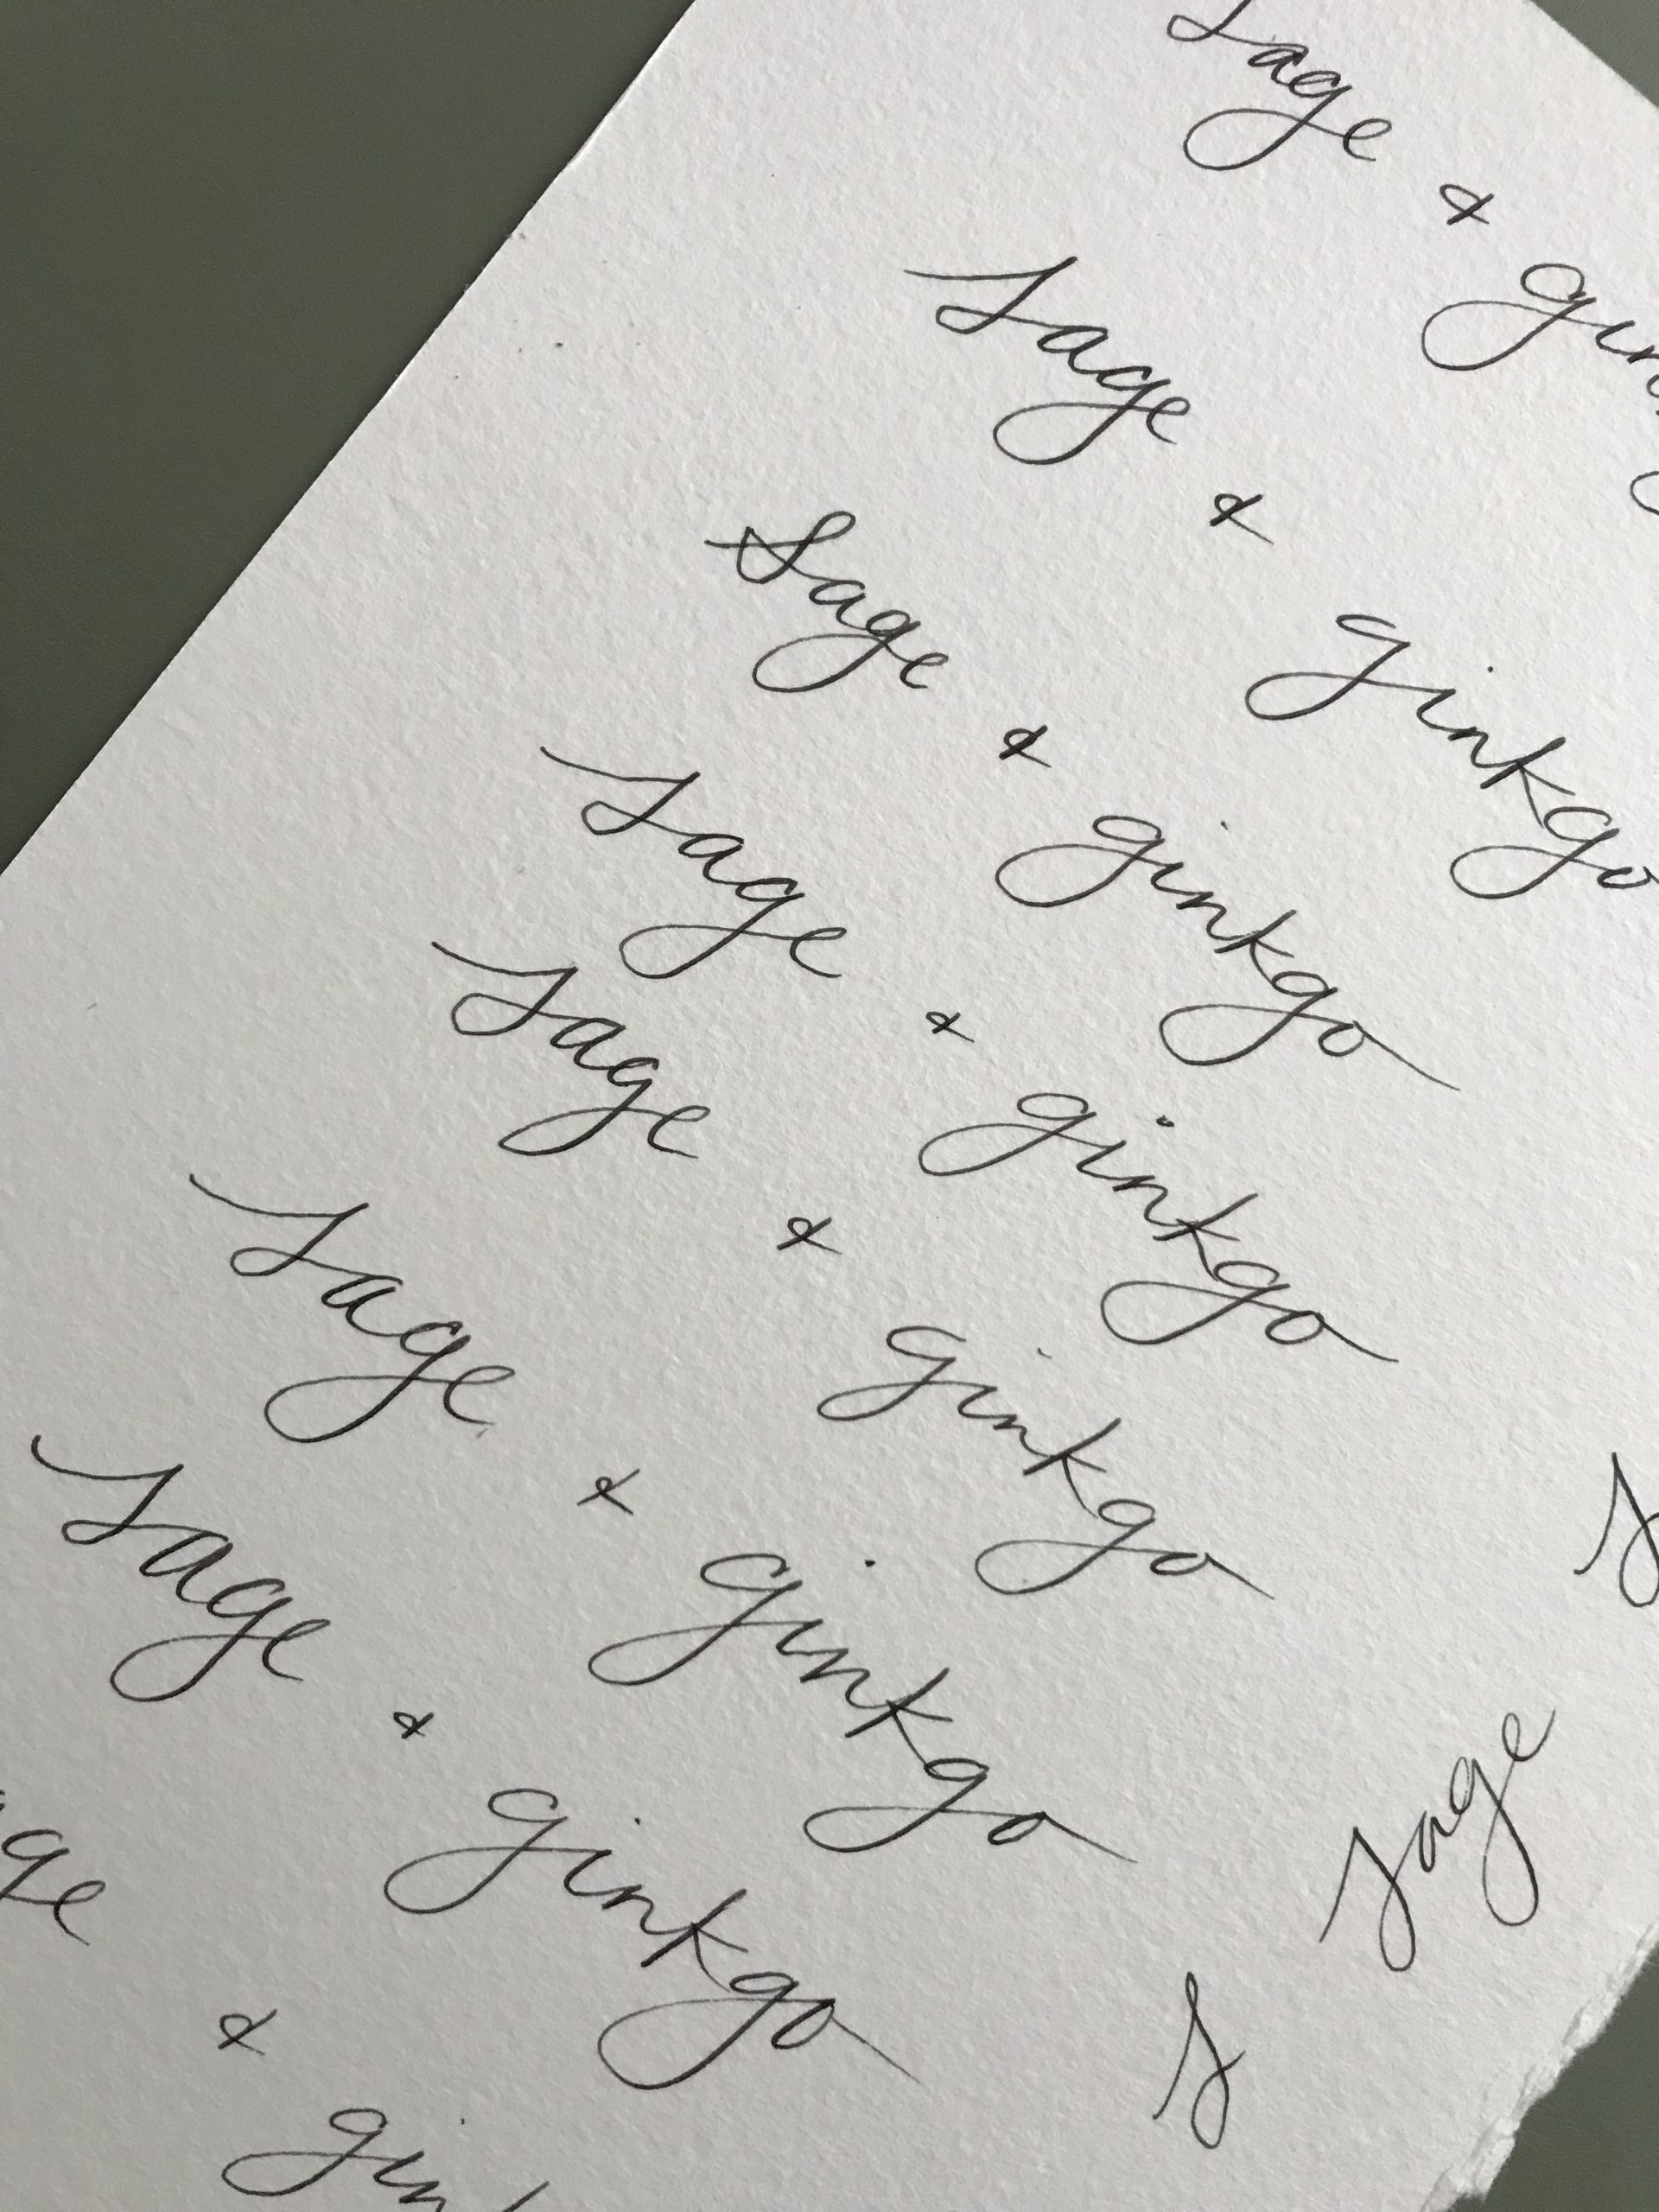 sage & gin
sage & ginkgo
sage & ginkgo
sage & ginkgo
sage & ginkgo
sage & ginkgo
sage & ginkgo
age & gin
s
sage
s